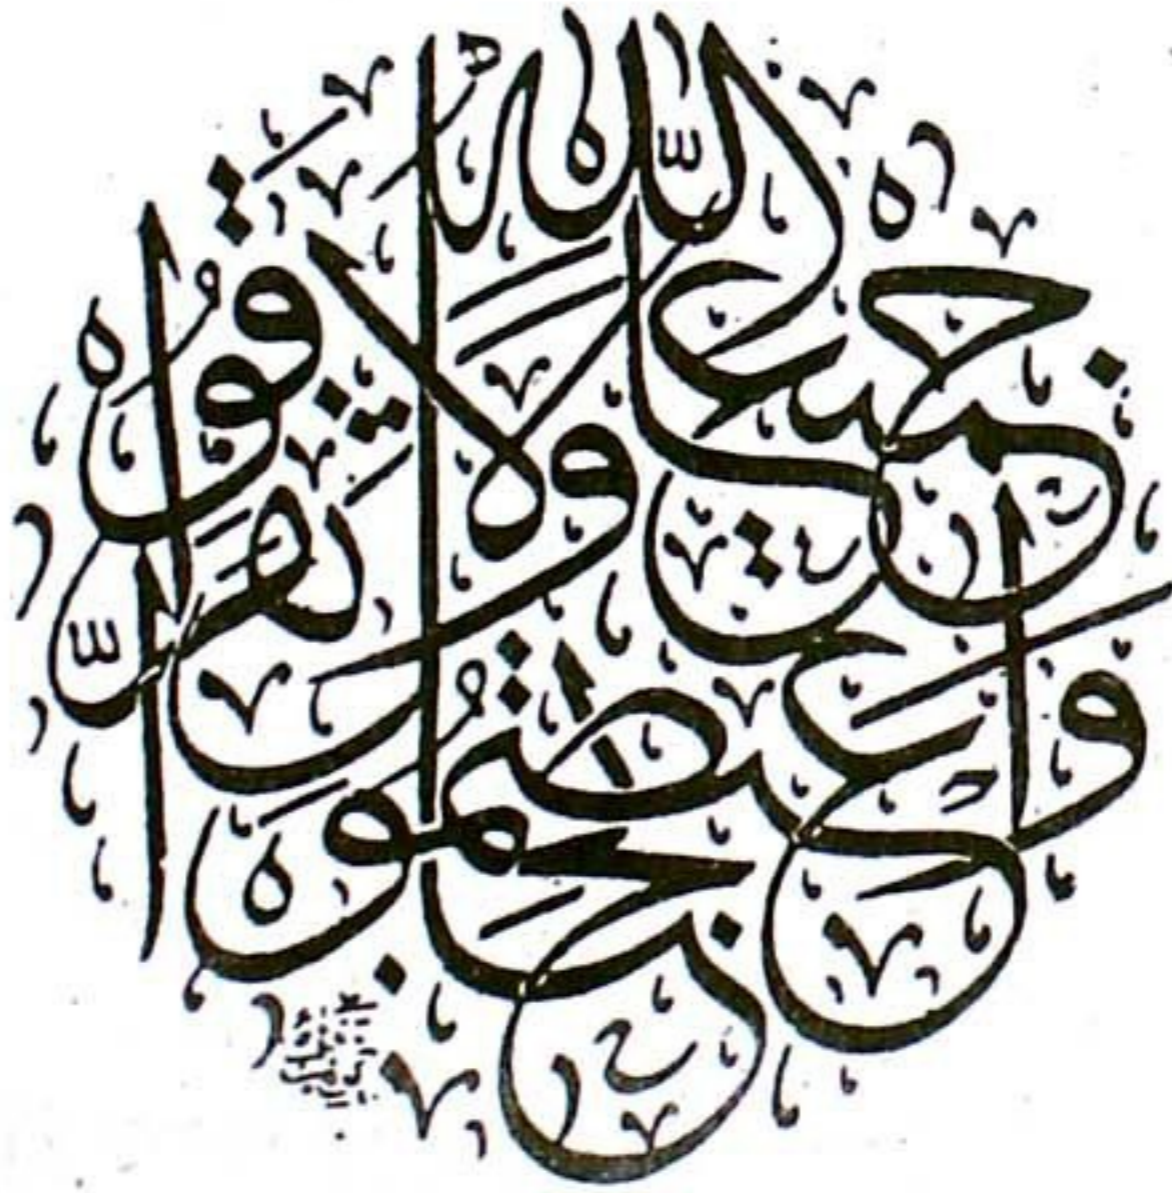 وَاعْتَصِمُوا بِحَبْلِ اللّٰهِ جَمِيعًا وَلَا تَفَرَّقُوا